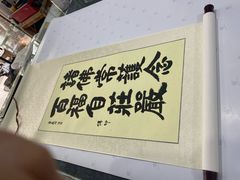 諸佛常護念
百福自莊嚴